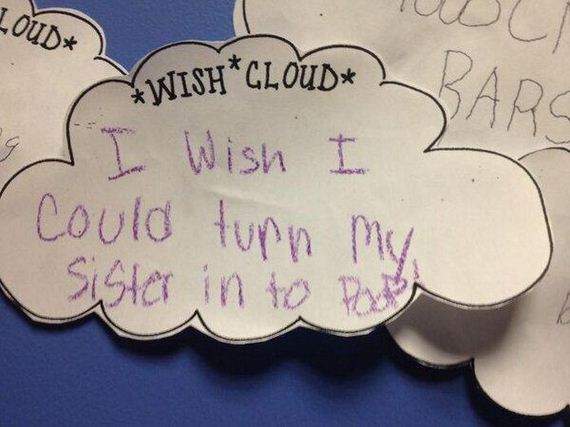 LOUD*
*WISH*CLOUD*
I Wish I
Could turn My
Sister in to Poop!
BARS